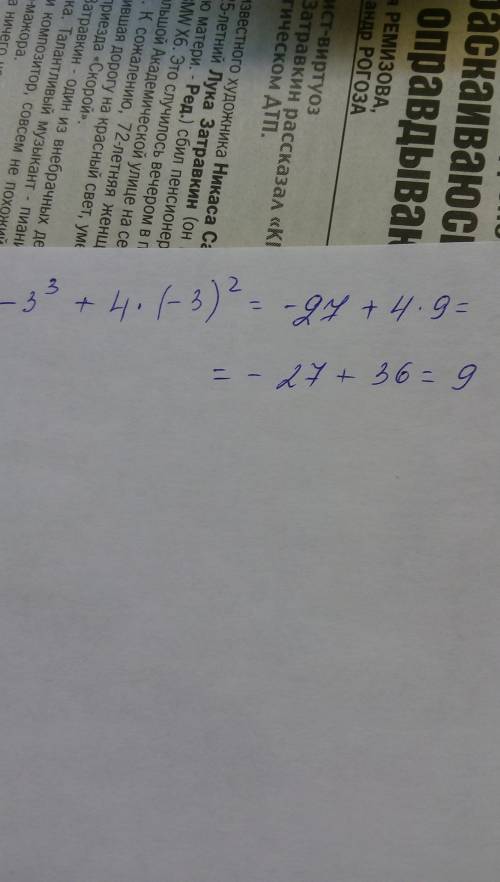 аскаиваюсь
оправдыван
я РЕМИЗОВА,
андр РОГОЗА
ист-виртуоз
Затравкин рассказал «К
гическом ДТП.
известного художника Никаса Са
5-летний Лука Затравкин (он
ю матери. - Ред.) сбил пенсионер
BMW X6. Это случилось вечером в п
льшой Академической улице на се
. К сожалению, 72-летняя женщ
ившая дорогу на красный свет, уме
приезда «Скорой».
Затравкин - один из внебрачных де
ка. Талантливый музыкант - пиани
и композитор, совсем не похожий
-мажора.
а ничего не
-3³ + 4·(-3)² = -27 + 4·9=
= - 27 + 36 = 9